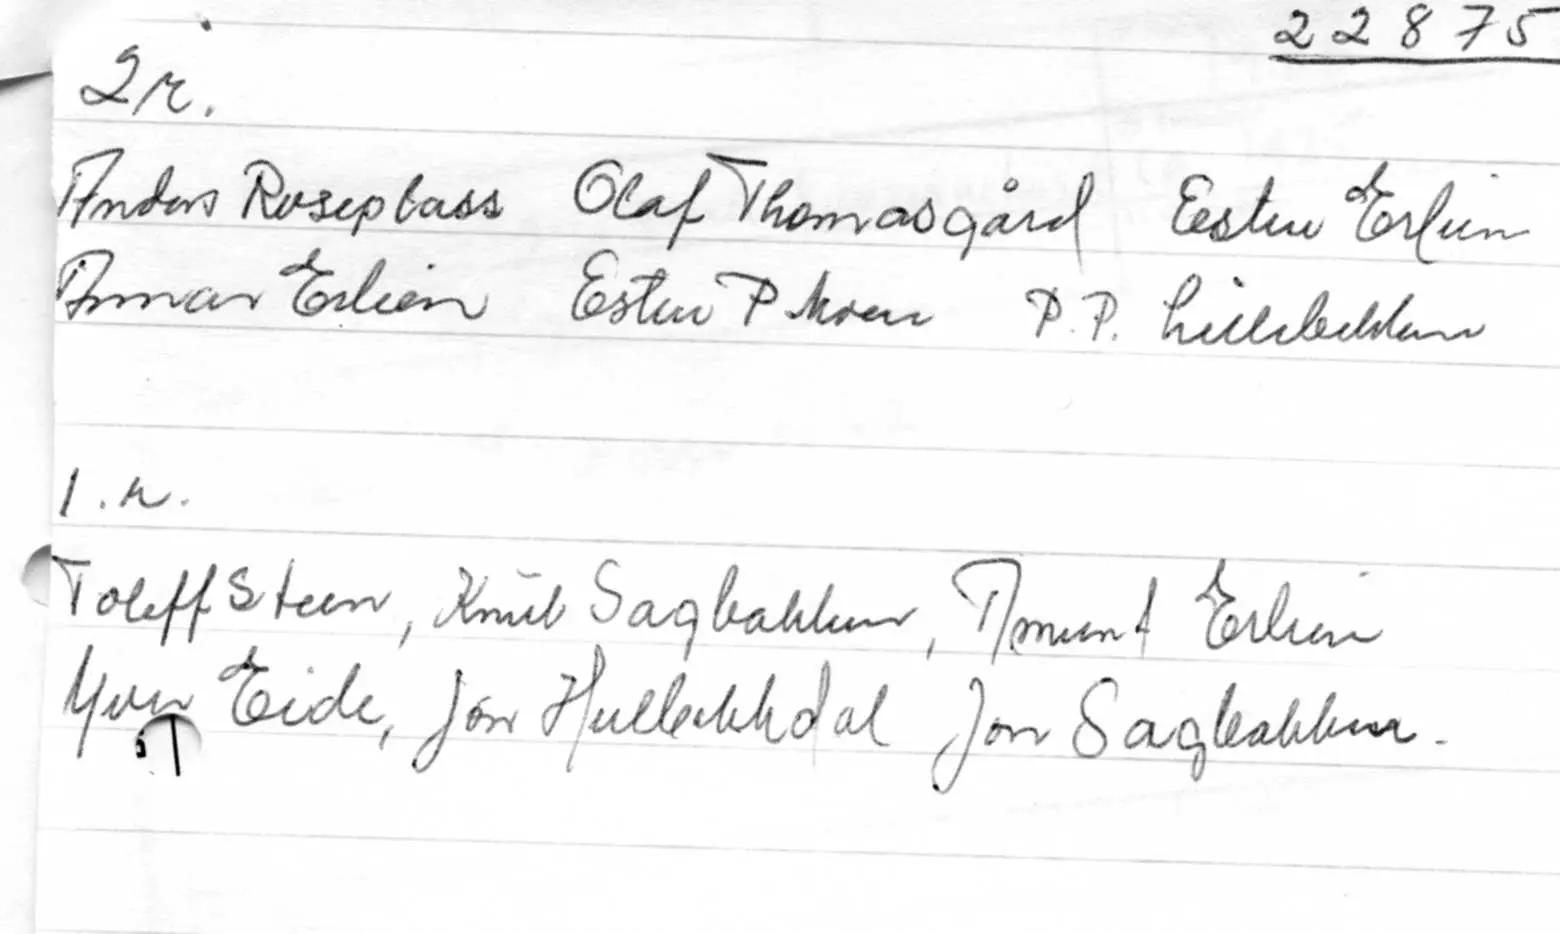 22875
2r.
Anders Roseplass Olaf Thomasgård Esten Erlien
Esten P Moen P.P. Lillebekken
1.r.
Toleff Steen, Knut Sagbakken, Amund Erlien
Eide, Jon Hullebekkdal Jon Sagbakken.